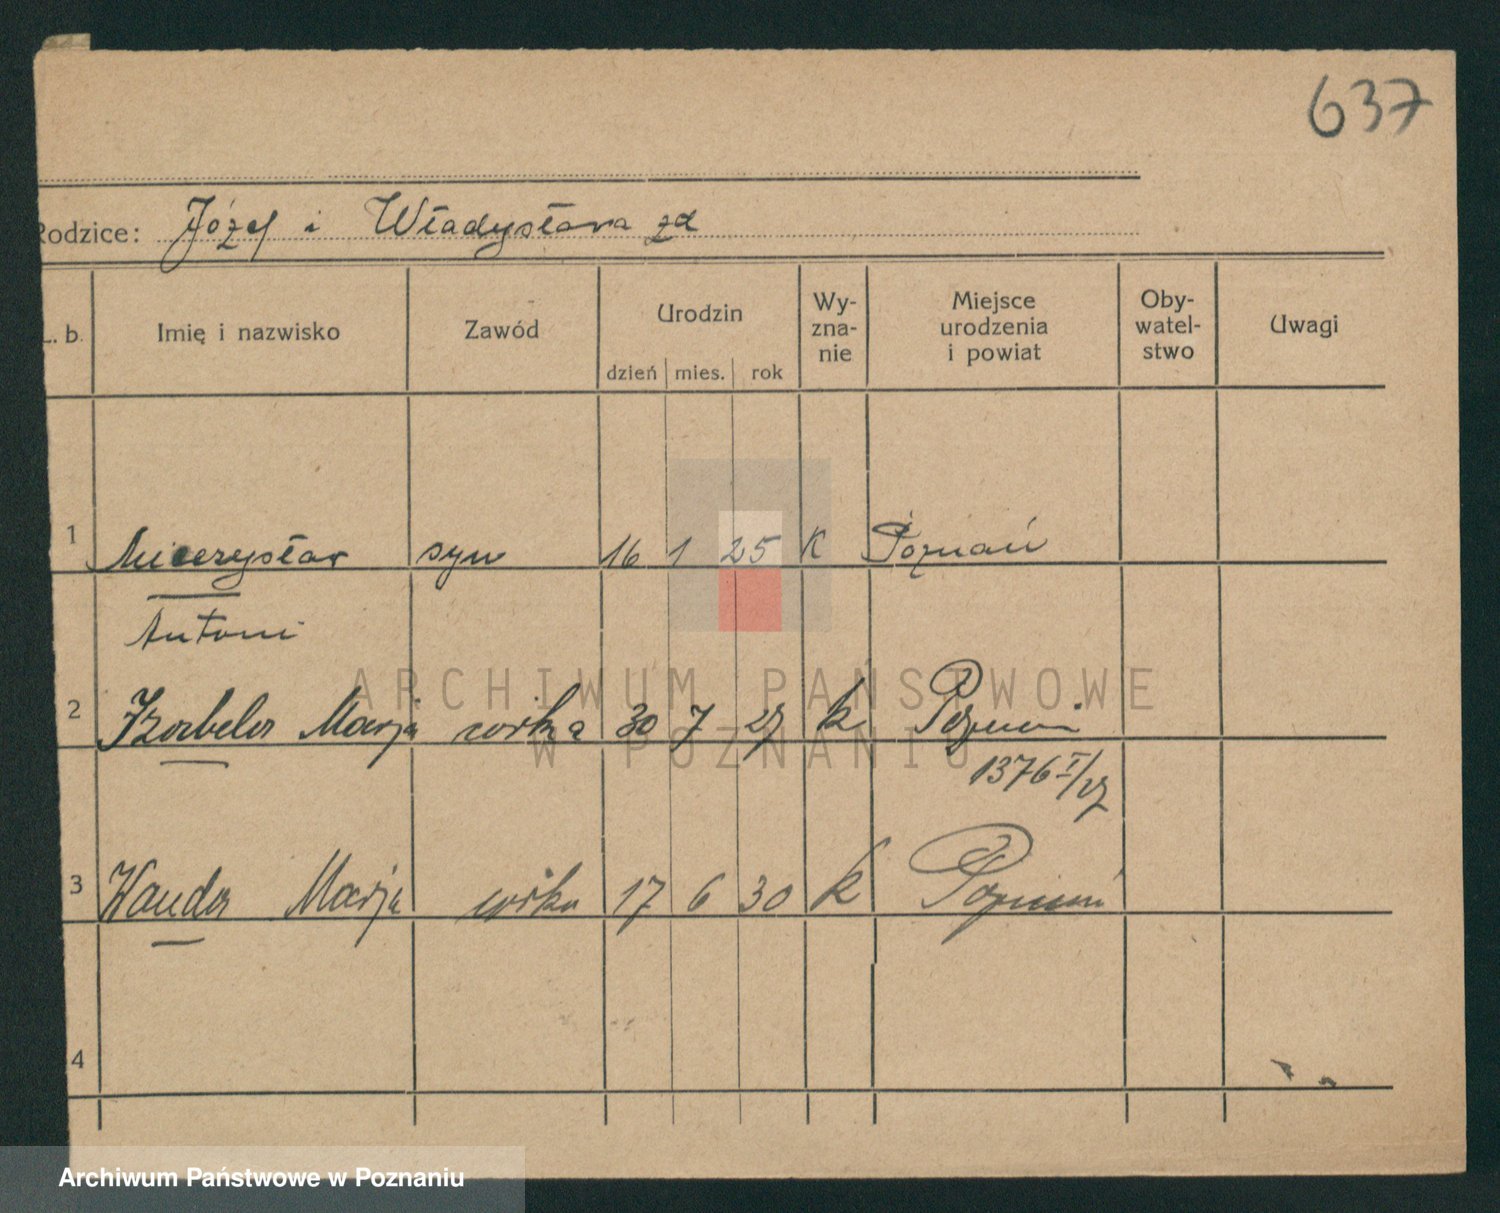 637
Rodzice: Józef i Władysława zd
L. b.
Imię i nazwisko
Zawód
Urodzin
dzień mies. rok
Wy-
zna-
nie
Miejsce
urodzenia
i powiat
Oby-
watel-
stwo
Uwagi
1 Mieczysław syn 16 1 25 K Poznań
Antoni
2 Izabela Marja córka 30 7 27 k Poznań
1376 I/27
3 Wanda Marja córka 17 6 30 k Poznań
4
ARCHIWUM PAŃSTWOWE
W POZNANIU
Archiwum Państwowe w Poznaniu